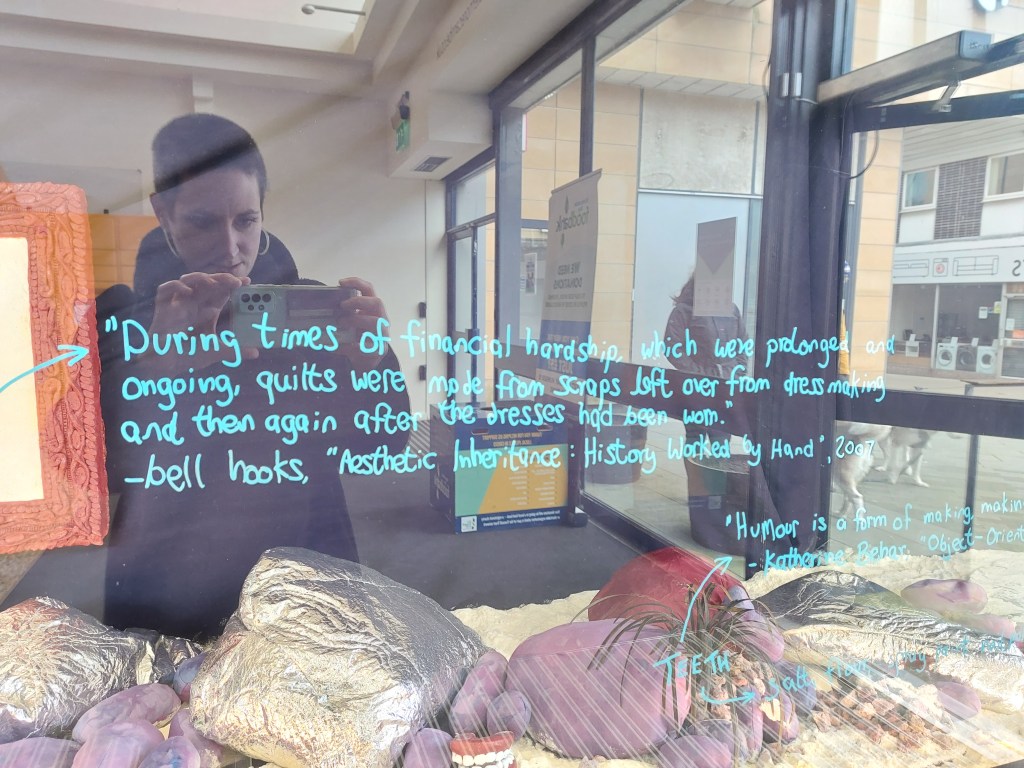 "During times of financial hardship, which were prolonged and
ongoing, quilts were made from scraps left over from dressmaking
and then again after the dresses had been worn."
-bell hooks, "Aesthetic Inheritance: History Worked by Hand", 2007
foodbank
WE NEED
DONATIONS
"Humour is a form of making, making
- Katherine Behar, "Object-Orient
TEETH